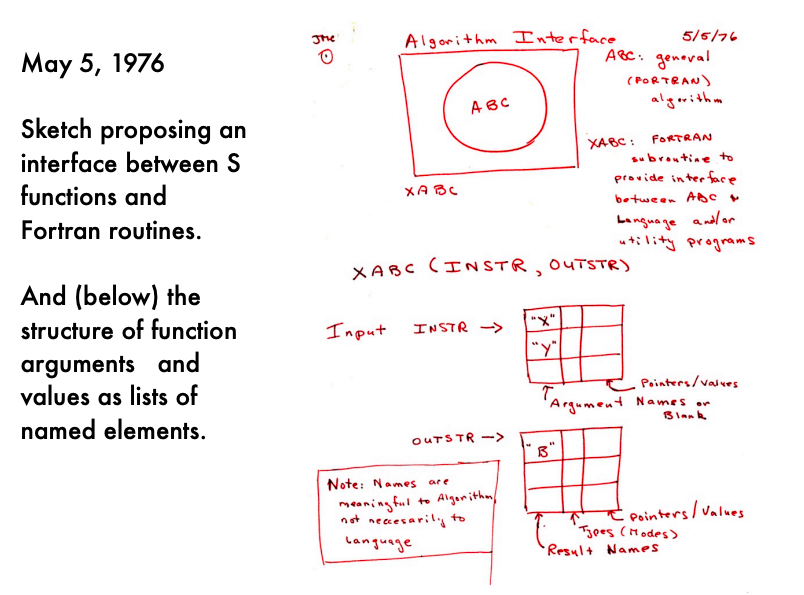 May 5, 1976
Sketch proposing an
interface between S
functions and
Fortran routines.
And (below) the
structure of function
arguments and
values as lists of
named elements.
JMC
Algorithm Interface
5/5/76
ABC
XABC
ABC: general
(FORTRAN)
algorithm
XABC: FORTRAN
subroutine to
provide interface
between ABC &
Language and/or
utility programs
XABC (INSTR, OUTSTR)
Input INSTR →
"X"
"Y"
Pointers/Values
Argument Names or
Blank
OUTSTR →
"B"
Pointers/Values
Types (Modes)
Result Names
Note: Names are
meaningful to Algorithm,
not necesarily to
Language